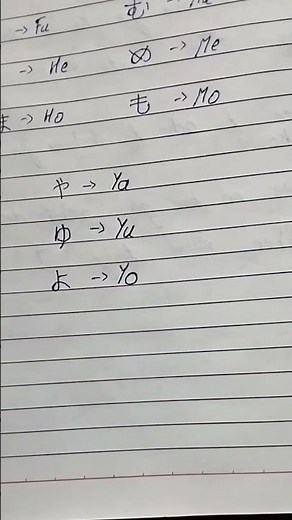 → Fu
む →
→ He
め → Me
→ Ho
も → Mo
や → Ya
ゆ → Yu
よ → Yo